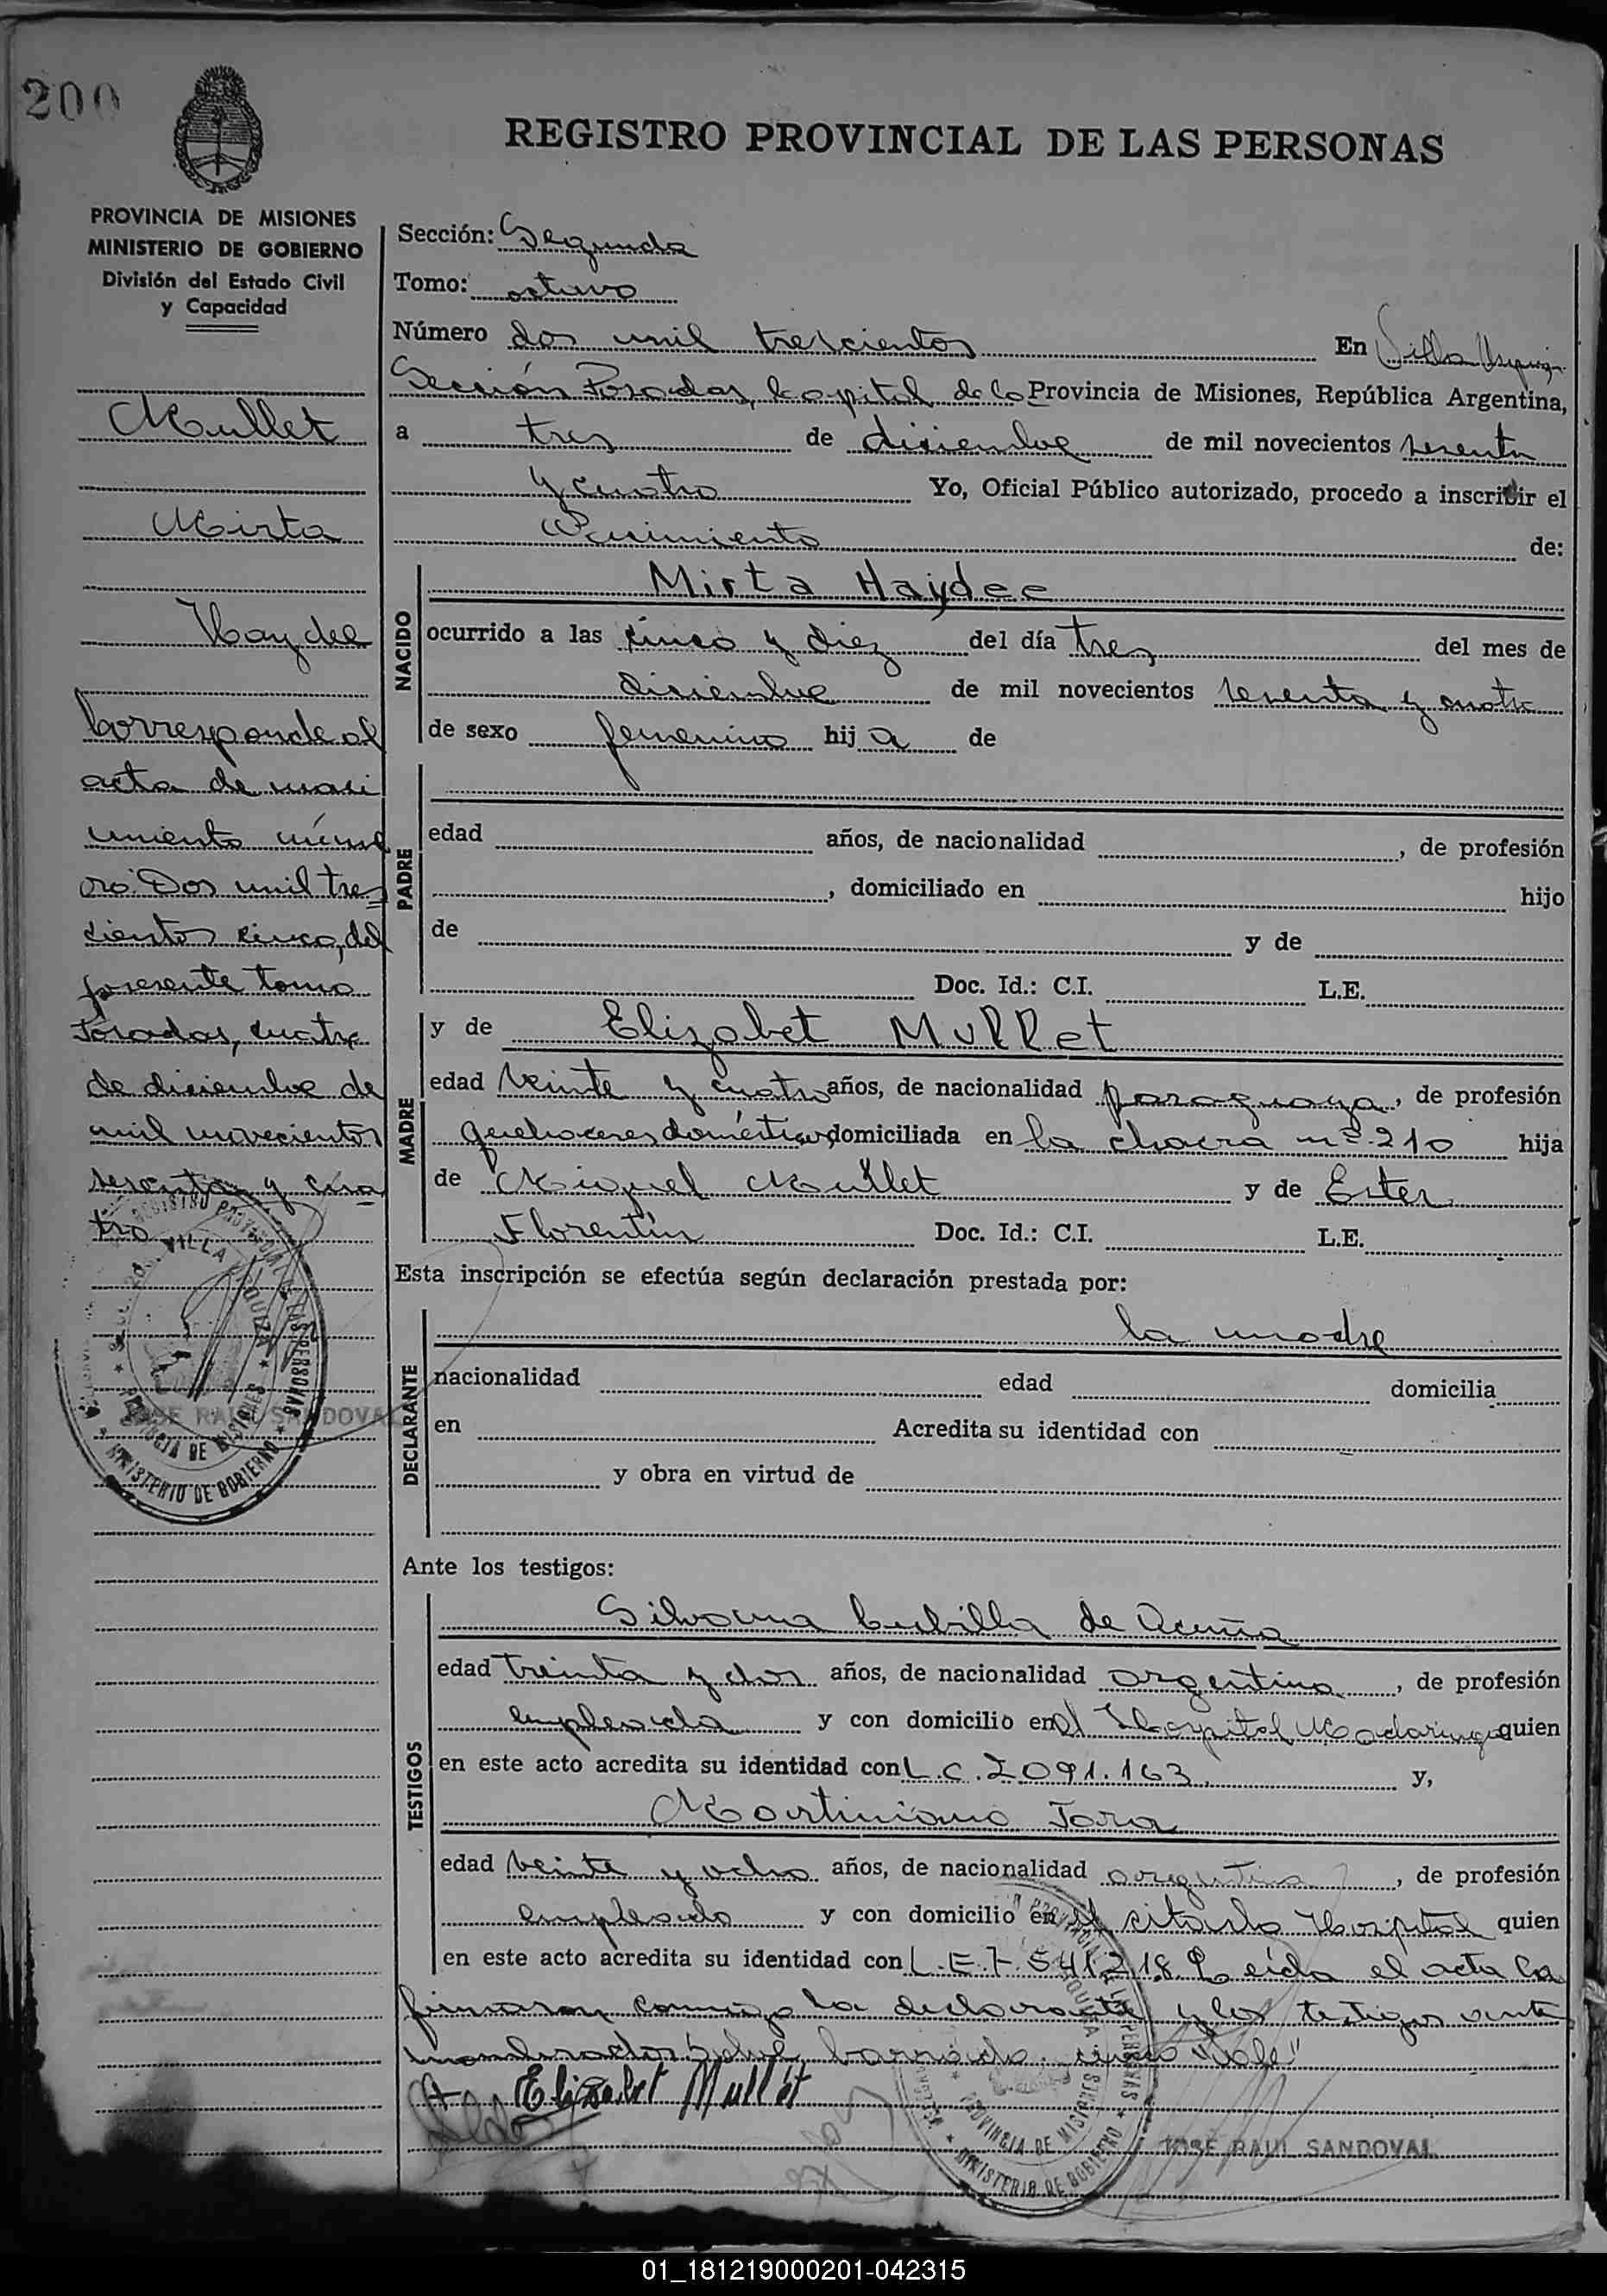 200
REGISTRO PROVINCIAL DE LAS PERSONAS
PROVINCIA DE MISIONES
MINISTERIO DE GOBIERNO
División del Estado Civil
y Capacidad
Mullet
Mirta
Haydee
Corresponde al
acta de naci
miento núme
ro: Dos mil tres
cientos cinco, del
presente tomo
Posadas, cuatro
de diciembre de
mil novecientos
sesenta y cua
tro
JOSE RAUL SANDOVAL
Sección: Segunda
Tomo: octavo
Número dos mil trescientos En Villa Urquiza
Sección Posadas, Capital de la Provincia de Misiones, República Argentina,
a tres de diciembre de mil novecientos sesenta
y cuatro Yo, Oficial Público autorizado, procedo a inscribir el
Nacimiento de:
NACIDO
Mirta Haydee
ocurrido a las cinco y diez del día tres del mes de
diciembre de mil novecientos sesenta y cuatro
de sexo femenino hija de
PADRE
edad años, de nacionalidad , de profesión
, domiciliado en hijo
de y de
Doc. Id.: C.I. L.E.
MADRE
y de Elizabet Mullet
edad veinte y cuatro años, de nacionalidad paraguaya, de profesión
quehaceres domésticos, domiciliada en la chacra nº 210 hija
de Miguel Mullet y de Ester
Florentín Doc. Id.: C.I. L.E.
Esta inscripción se efectúa según declaración prestada por:
DECLARANTE
la madre
nacionalidad edad domicilia
en Acredita su identidad con
y obra en virtud de
Ante los testigos:
TESTIGOS
Silvana Cubilla de Acuña
edad treinta y dos años, de nacionalidad argentina, de profesión
empleada y con domicilio en el Hospital Madariaga quien
en este acto acredita su identidad con L.C. 2091.163 y,
Martiniano Jara
edad veinte y ocho años, de nacionalidad argentina, de profesión
empleado y con domicilio en el citado Hospital quien
en este acto acredita su identidad con L.E. 7.541218. Leída el acta la
firmaron conmigo la declarante y los testigos ante
nombrados. Sobre borrado: cinco "Vale"
Elizabet Mullet
REGISTRO PROVINCIAL DE LAS PERSONAS
VILLA URQUIZA
PROVINCIA DE MISIONES
MINISTERIO DE GOBIERNO
JOSE RAUL SANDOVAL
01_181219000201-042315